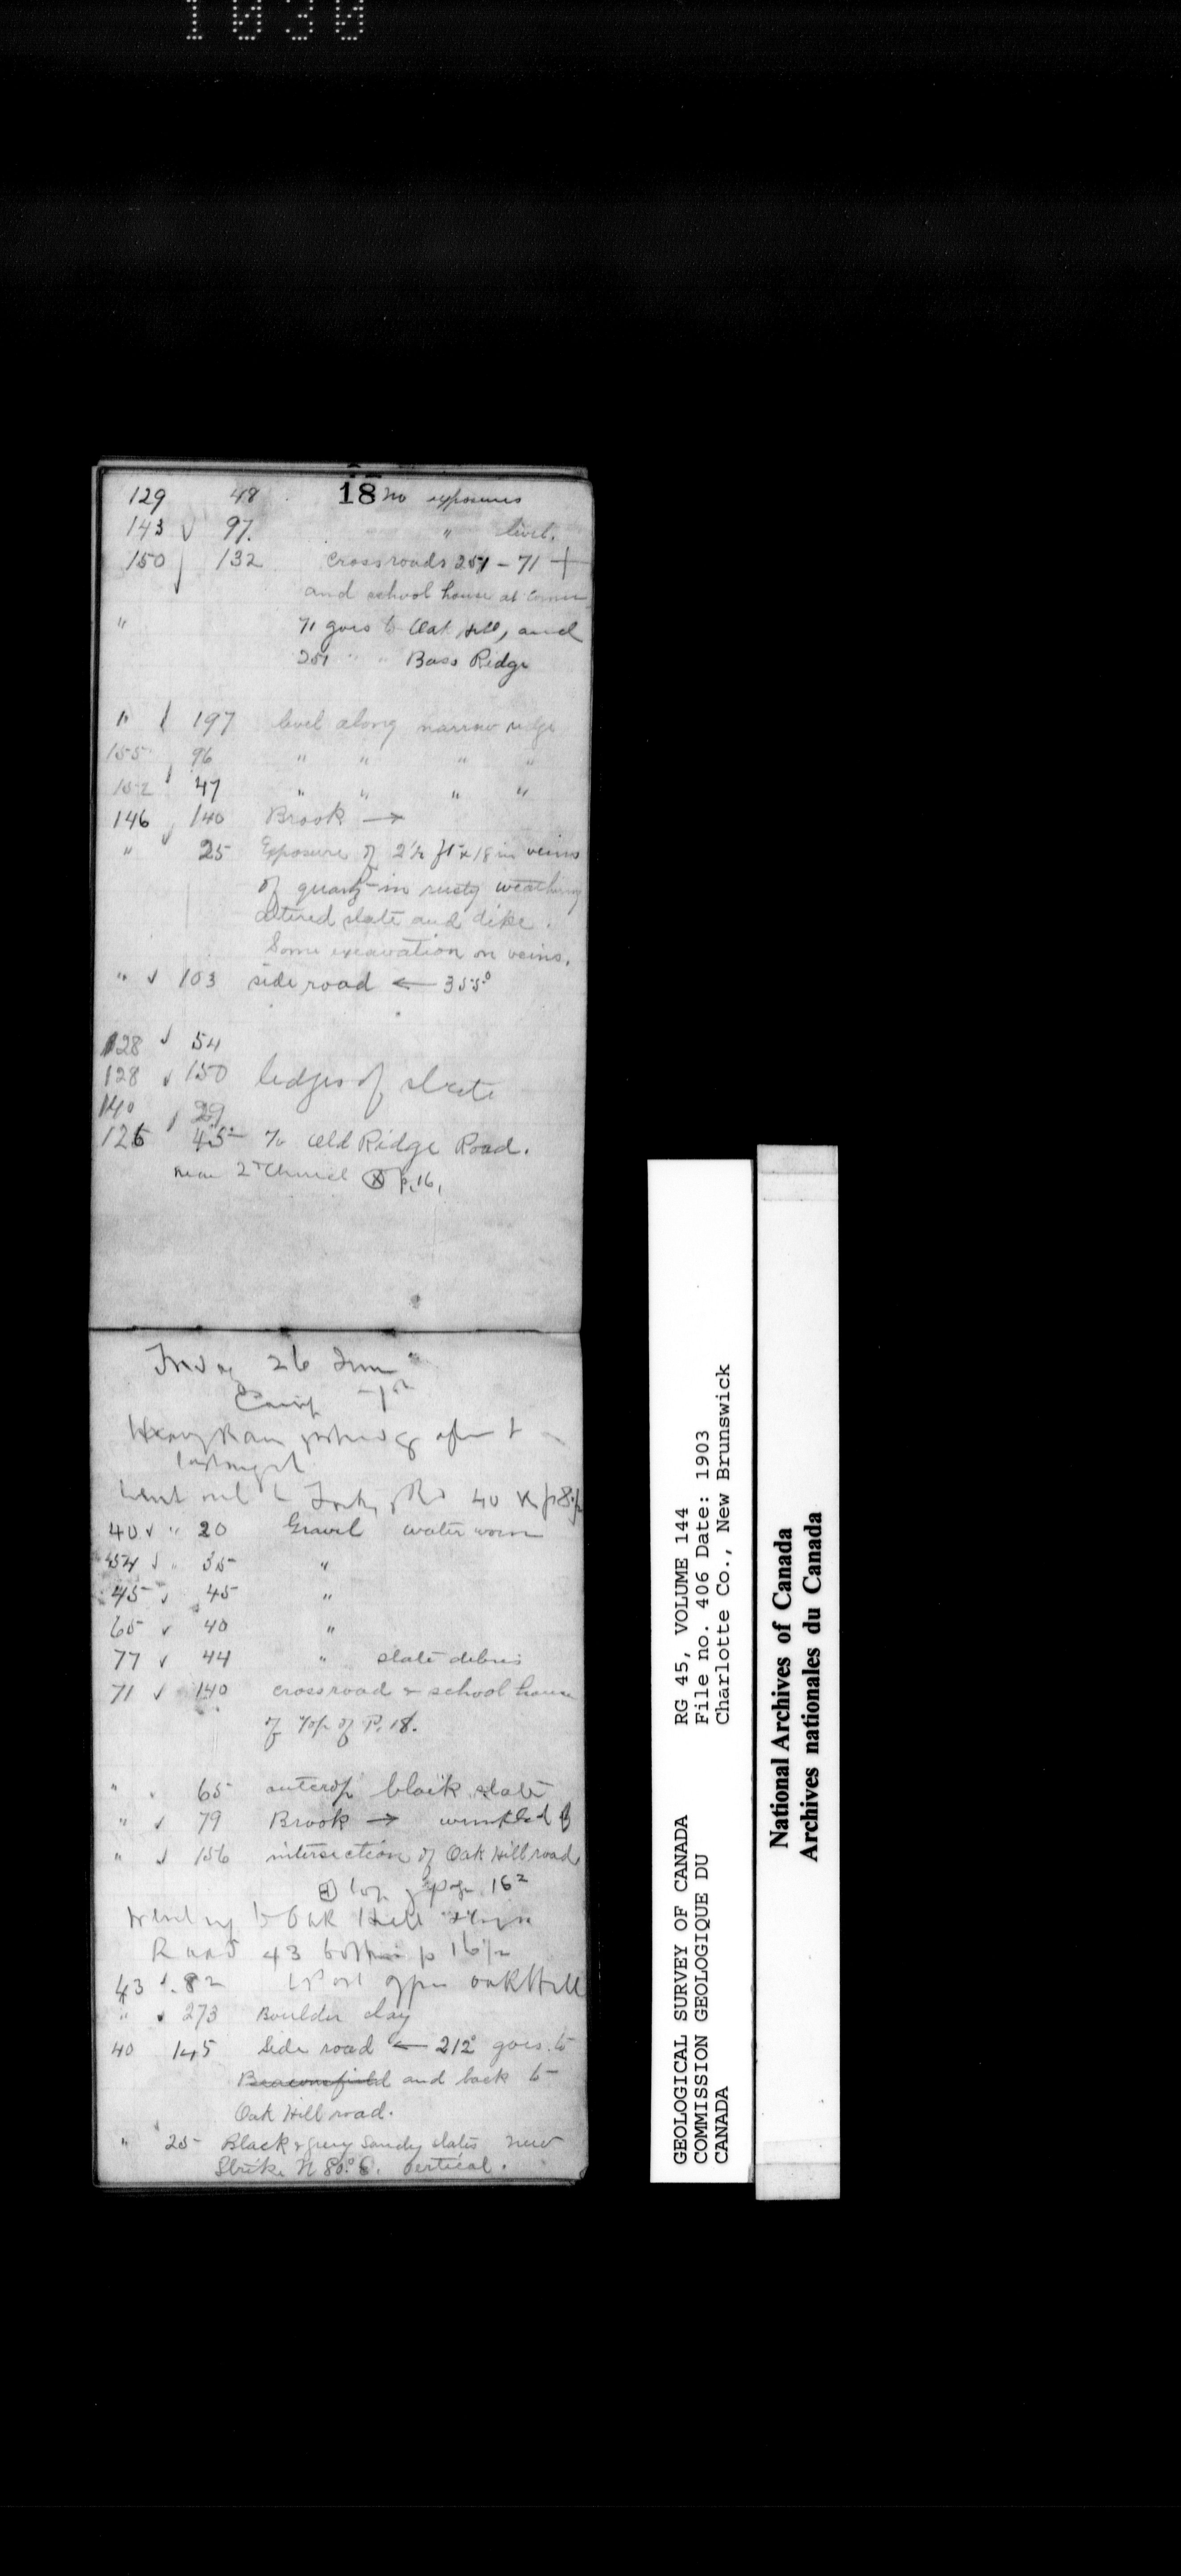 1030
18
129 48 no exposures
143 √ 97. " level.
150 132 Crossroads 251 - 71 +
and school house at corner
" 71 goes to Oak Hill, and
251 " " Bass Ridge
" 197 level along narrow ridge
155 96 " " " "
152 47 " " " "
146 140 Brook →
" 25 Exposure of 2½ ft x 18 in veins
of quartz in rusty weathering
altered slate and dike.
Some excavation on veins.
" √ 103 side road ← 355°
128 √ 54
128 √ 150 ledges of slate
140 29
126 45 To Old Ridge Road.
near 2nd Church ⊗ p. 16.
Friday 26 June
Camp
Heavy Rain
last night
Went out 40
40 √ " 20 Gravel water worn
54 √ " 35 "
45 √ 45 "
65 √ 40 "
77 √ 44 " slate debris
71 √ 140 crossroad & school house
of top of P. 18.
" 65 outcrop black slate
" √ 79 Brook →
" √ 156 intersection of Oak Hill road
top page 16
to Oak Hill
Road 43 bottom p 16
43 √ 82 Oak Hill
" √ 273 Boulder clay
40 145 Side road ← 212° goes to
Beaconsfield and back to
Oak Hill road.
" 25 Black & grey sandy slates
Strike N 80° E. vertical.
GEOLOGICAL SURVEY OF CANADA
COMMISSION GEOLOGIQUE DU
CANADA
RG 45, VOLUME 144
File no. 406 Date: 1903
Charlotte Co., New Brunswick
National Archives of Canada
Archives nationales du Canada